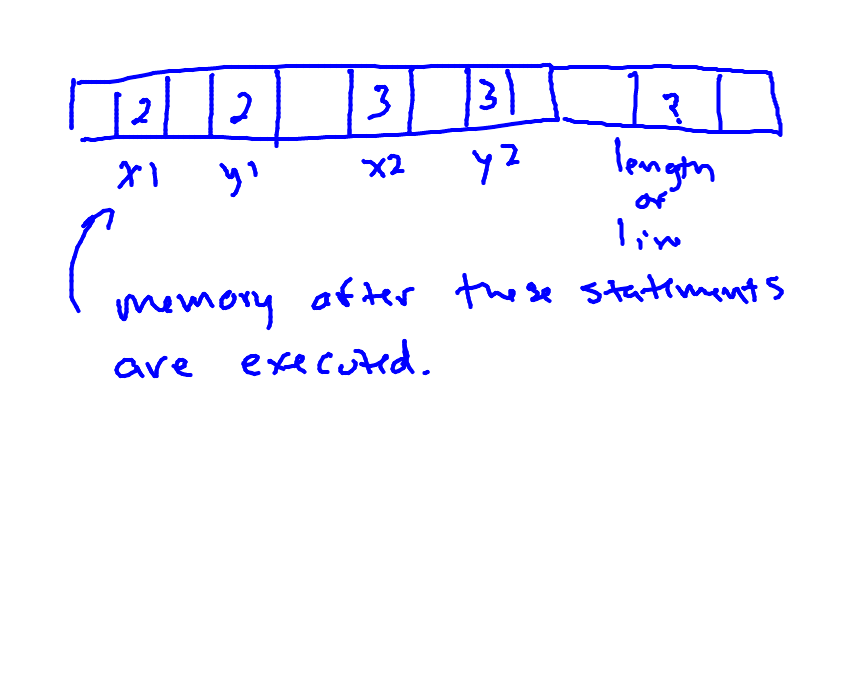 2 2 3 3 ?
x1 y1 x2 y2 length
of
line
memory after these statements
are executed.